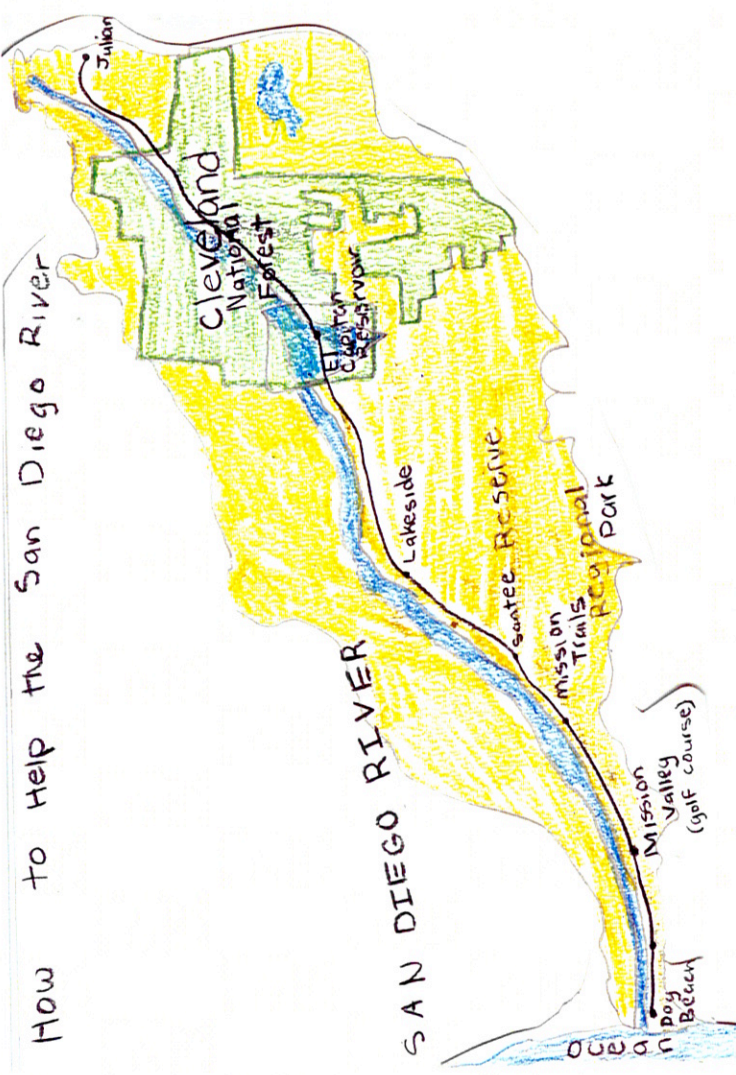 How to Help the San Diego River
SAN DIEGO RIVER
Julian
Cleveland
National
Forest
El
Capitan
Reservoir
Lakeside
Santee Reserve
Mission
Trails
Regional
Park
Mission
Valley
(golf course)
Dog
Beach
Ocean